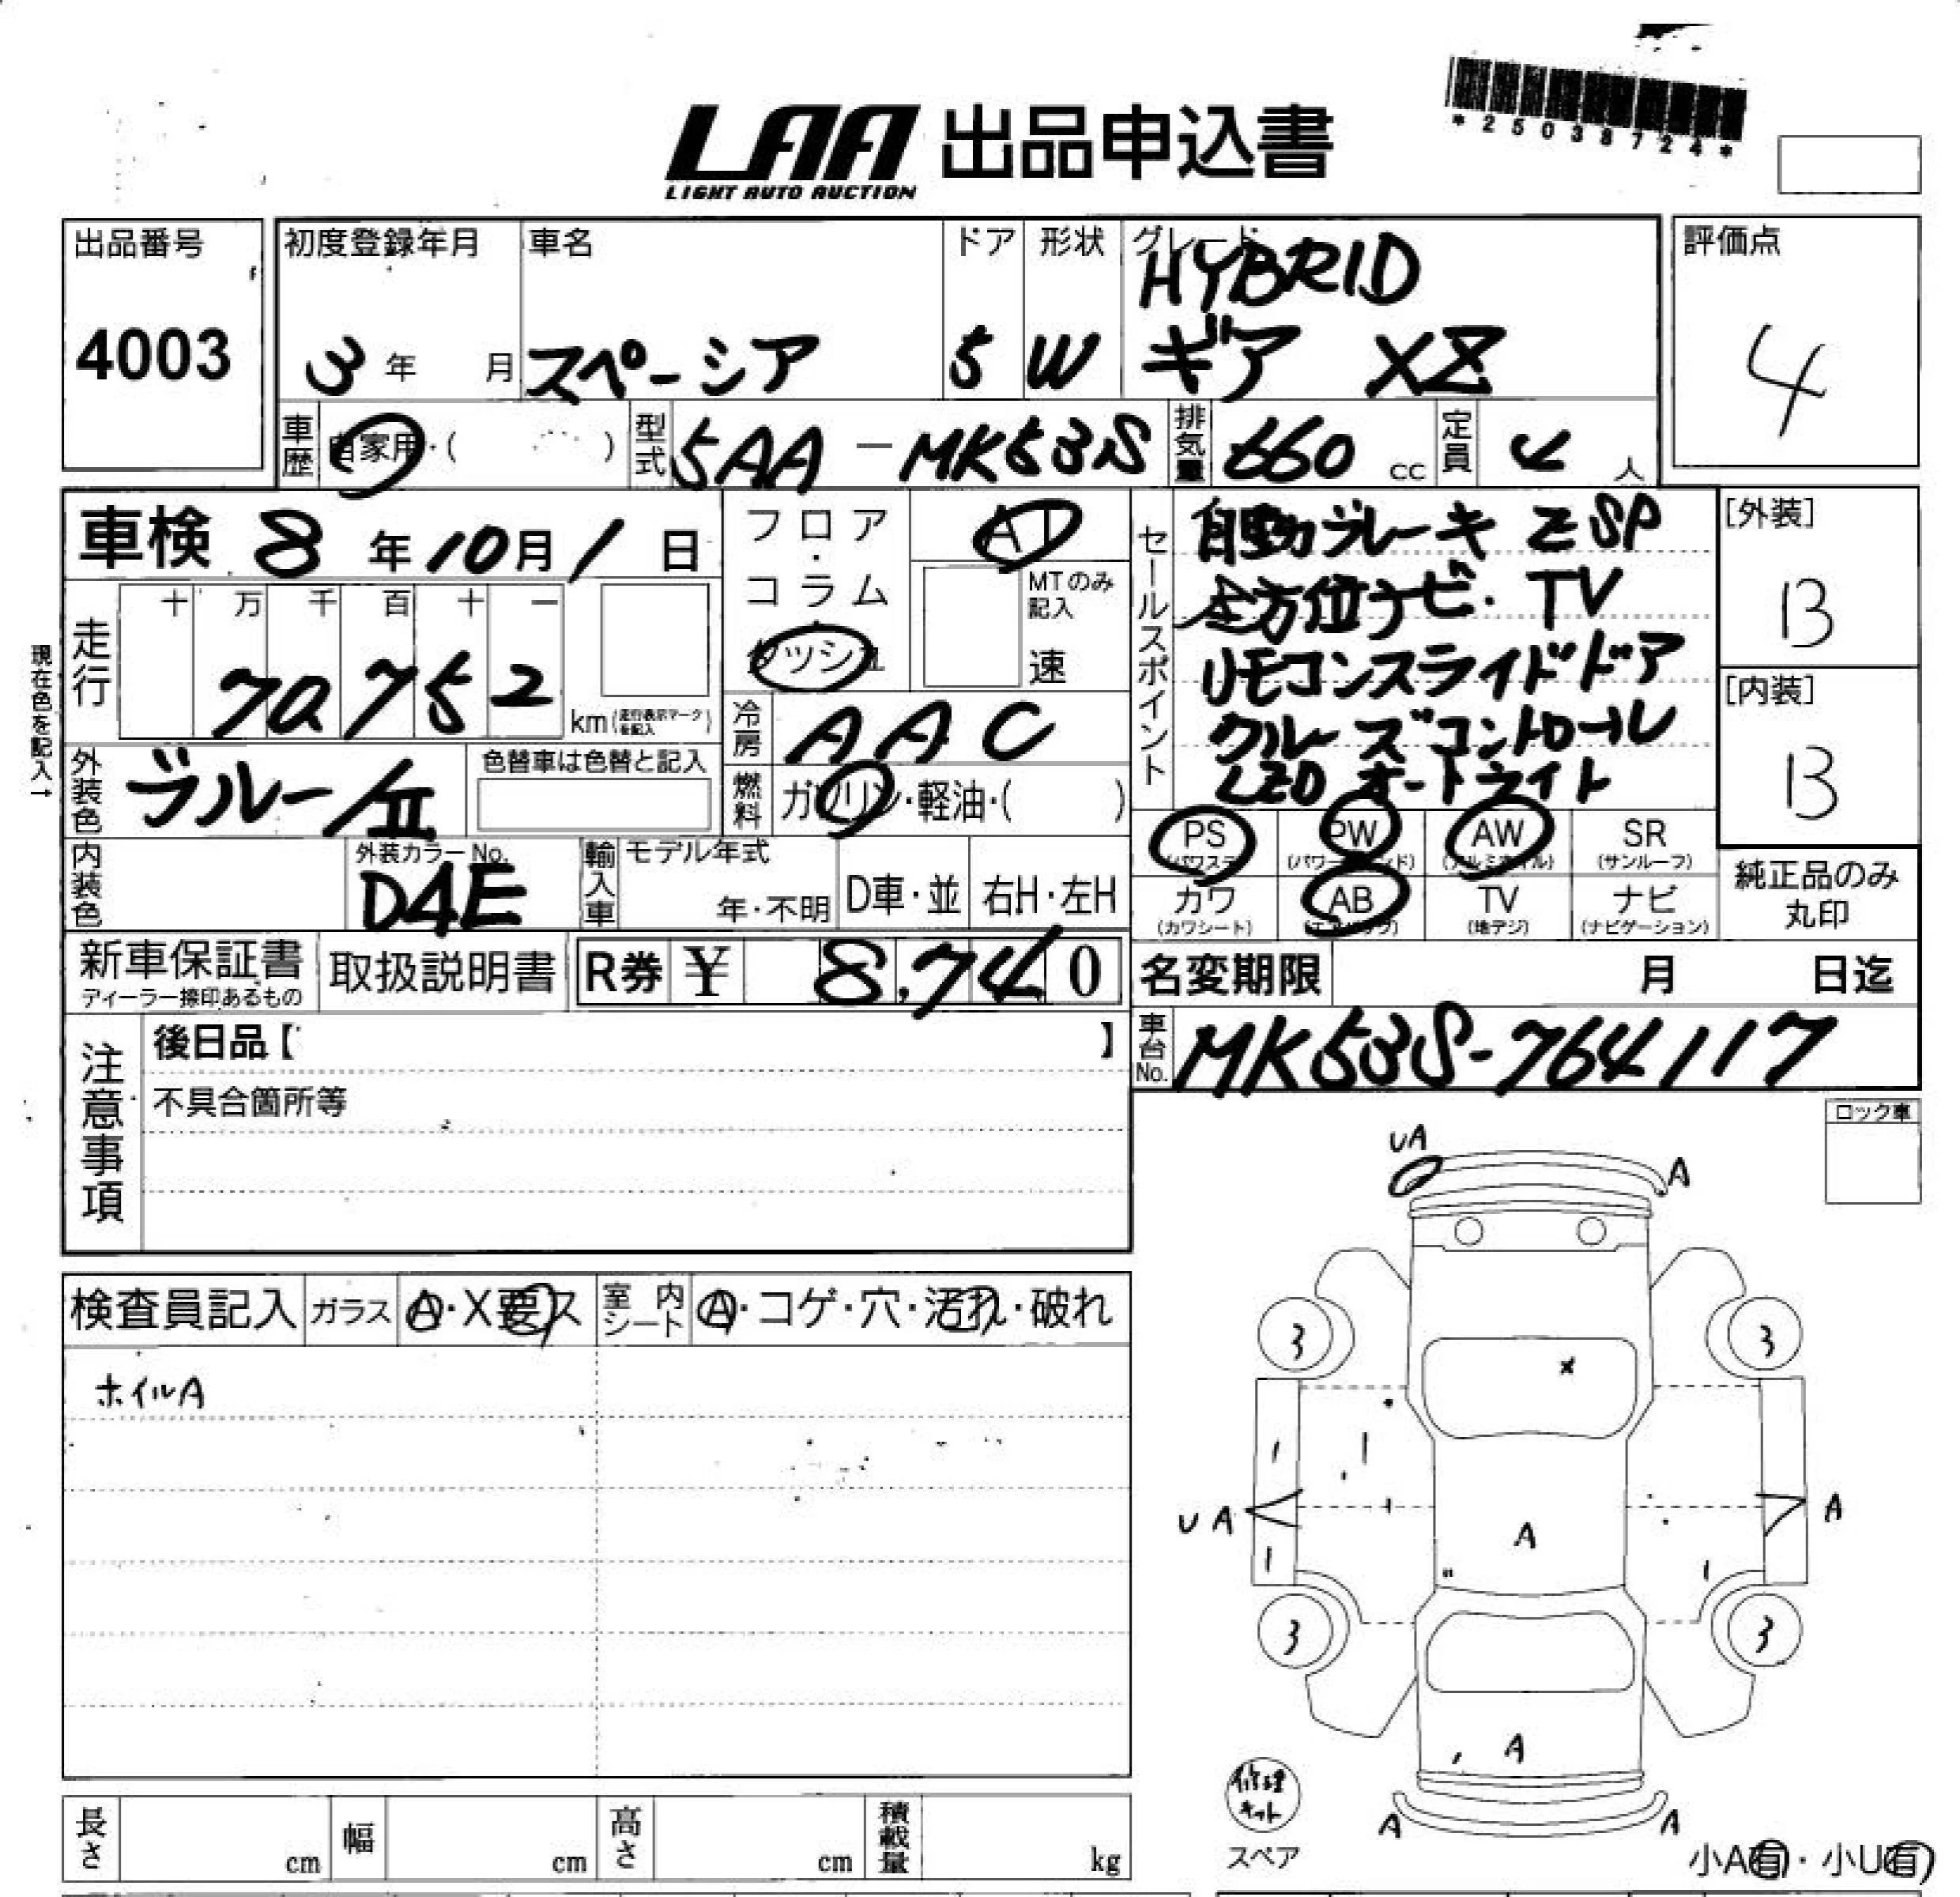 LAA 出品申込書
LIGHT AUTO AUCTION
*25038724*
出品番号
4003
初度登録年月
3年 月
車名
スペーシア
ドア
5
形状
W
グレード
HYBRID
ギア XZ
評価点
4
車歴 自家用・( )
型式 5AA-MK53S
排気量 660 cc
定員 4 人
車検 8年10月1日
フロア・コラム・ダッシュ
AT
MTのみ記入
速
セールスポイント
自動ブレーキ ESP
全方位ナビ・TV
リモコンスライドドア
クルーズコントロール
LED オートライト
[外装]
B
[内装]
B
現在色を記入→
走行
十 万 千 百 十 一
70752 km(走行表示マークを記入)
冷房 AAC
外装色 ブルー/II
色替車は色替と記入
燃料 ガソリン・軽油・( )
PS (パワステ)
PW (パワーウィンド)
AW (アルミホイル)
SR (サンルーフ)
内装色
外装カラーNo.
D4E
輸入車
モデル年式
年・不明
D車・並
右H・左H
カワ (カワシート)
AB (エアバッグ)
TV (地デジ)
ナビ (ナビゲーション)
純正品のみ
丸印
新車保証書
ディーラー捺印あるもの
取扱説明書
R券 ¥ 8,740
名変期限 月 日迄
注意事項
後日品【 】
不具合箇所等
車台No. MK53S-764117
ロック車
UA
A
検査員記入 ガラス A・X要ス 室内シート A・コゲ・穴・汚れ・破れ
ホイルA
3 3
UA A
A
3 3
A
A A
修理キット
スペア
小A有・小U有
長さ cm 幅 cm 高さ cm 積載量 kg